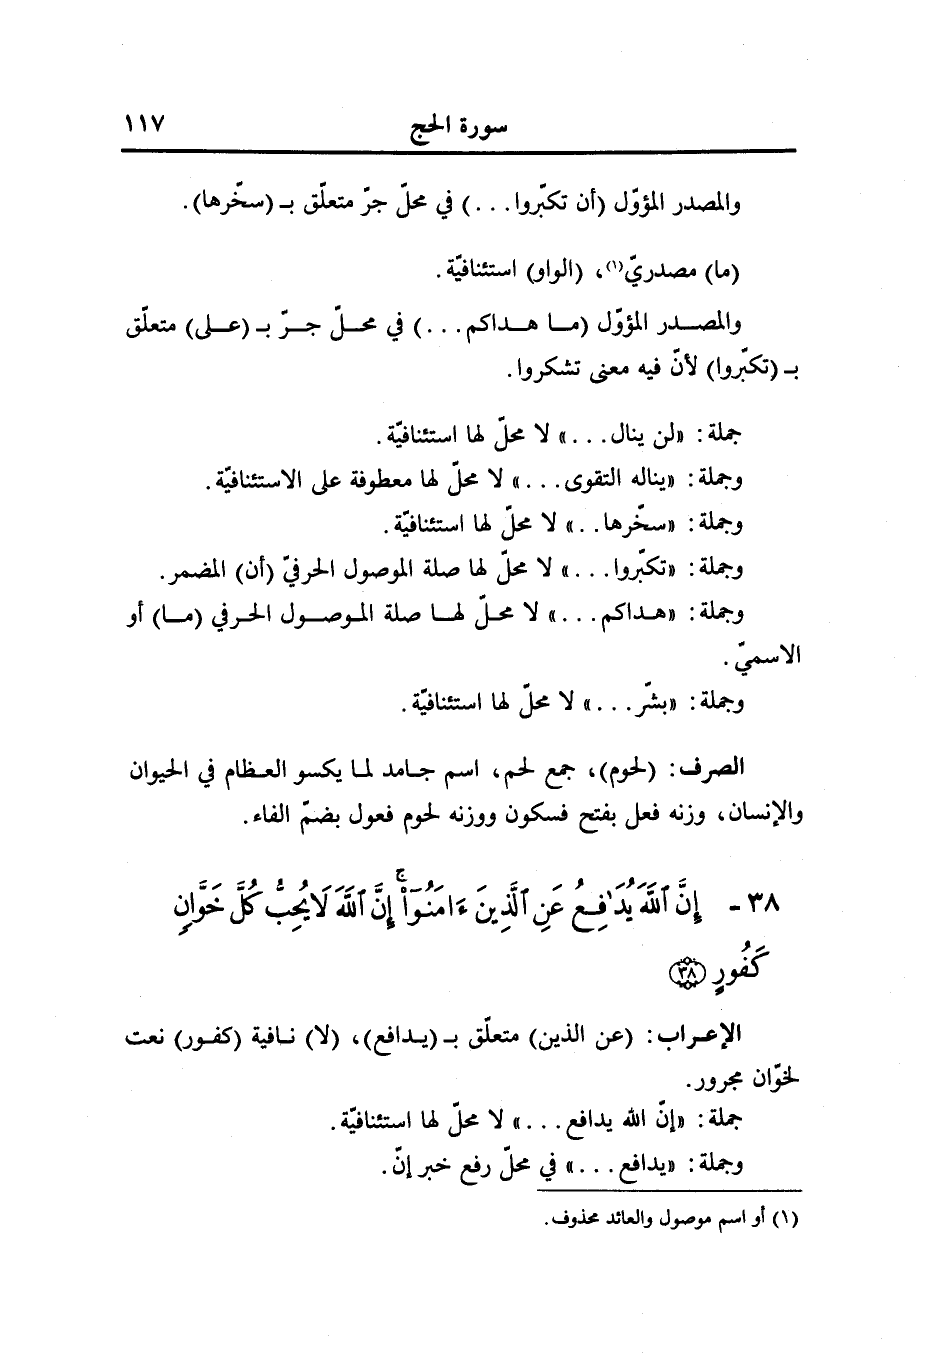 سورة الحج ١١٧
والمصدر المؤوّل (أن تكبّروا. . .) في محلّ جرّ متعلّق بـ (سخّرها).
(ما) مصدريّ(١)، (الواو) استئنافيّة.
والمصدر المؤوّل (ما هداكم. . .) في محلّ جرّ بـ (على) متعلّق
بـ (تكبّروا) لأنّ فيه معنى تشكروا.
جملة: «لن ينال. . .» لا محلّ لها استئنافيّة.
وجملة: «يناله التقوى. . .» لا محلّ لها معطوفة على الاستئنافيّة.
وجملة: «سخّرها. . .» لا محلّ لها استئنافيّة.
وجملة: «تكبّروا. . .» لا محلّ لها صلة الموصول الحرفيّ (أن) المضمر.
وجملة: «هداكم. . .» لا محلّ لها صلة الموصول الحرفي (ما) أو
الاسميّ.
وجملة: «بشّر. . .» لا محلّ لها استئنافيّة.
الصرف: (لحوم)، جمع لحم، اسم جامد لما يكسو العظام في الحيوان
والإنسان، وزنه فعل بفتح فسكون ووزنه لحوم فعول بضمّ الفاء.
٣٨ - إِنَّ ٱللَّهَ يُدَٰفِعُ عَنِ ٱلَّذِينَ ءَامَنُوٓا۟ ۚ إِنَّ ٱللَّهَ لَا يُحِبُّ كُلَّ خَوَّانٍ
كَفُورٍ ﴿٣٨﴾
الإعراب: (عن الذين) متعلّق بـ (يدافع)، (لا) نافية (كفور) نعت
لخوّان مجرور.
جملة: «إنّ الله يدافع. . .» لا محلّ لها استئنافيّة.
وجملة: «يدافع. . .» في محلّ رفع خبر إنّ.
(١) أو اسم موصول والعائد محذوف.